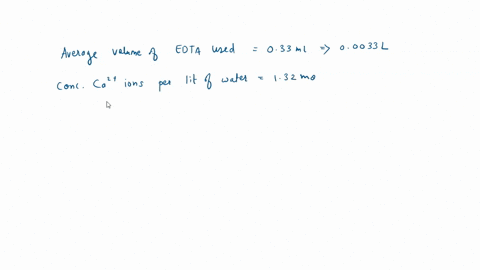 Average volume of EDTA used = 0.33 ml => 0.0033 L
Conc. Ca²⁺ ions per lit of water = 1.32 mo